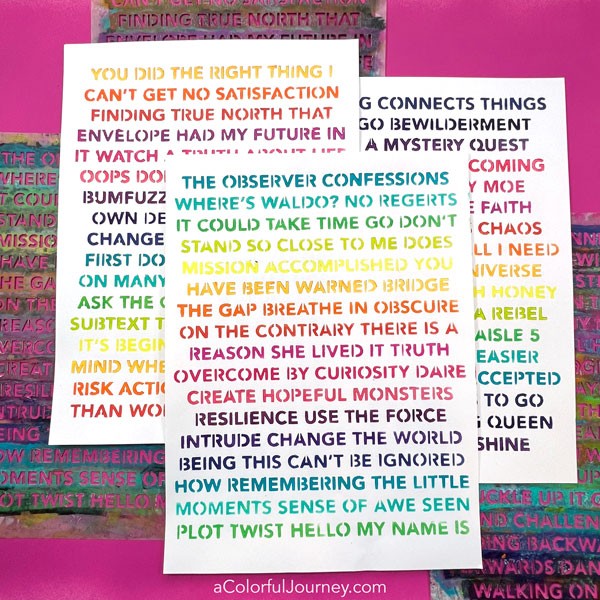 CAN'T GET NO SATISFACTION
FINDING TRUE NORTH THAT
ENVELOPE HAD MY FUTURE IN
YOU DID THE RIGHT THING I
CAN'T GET NO SATISFACTION
FINDING TRUE NORTH THAT
ENVELOPE HAD MY FUTURE IN
IT WATCH A TRUTH ABOUT LIFE
OOPS DO
BUMFUZZ
OWN DE
CHANGE
FIRST DO
ON MANY
ASK THE
SUBTEXT T
IT'S BEGIN
MIND WHE
RISK ACTIO
THAN WO
G CONNECTS THINGS
GO BEWILDERMENT
A MYSTERY QUEST
COMING
Y MOE
E FAITH
CHAOS
LL I NEED
NIVERSE
H HONEY
A REBEL
AISLE 5
EASIER
ACCEPTED
S TO GO
NG QUEEN
SHINE
THE OBSERVER CONFESSIONS
WHERE'S WALDO? NO REGERTS
IT COULD TAKE TIME GO DON'T
STAND SO CLOSE TO ME DOES
MISSION ACCOMPLISHED YOU
HAVE BEEN WARNED BRIDGE
THE GAP BREATHE IN OBSCURE
ON THE CONTRARY THERE IS A
REASON SHE LIVED IT TRUTH
OVERCOME BY CURIOSITY DARE
CREATE HOPEFUL MONSTERS
RESILIENCE USE THE FORCE
INTRUDE CHANGE THE WORLD
BEING THIS CAN'T BE IGNORED
HOW REMEMBERING THE LITTLE
MOMENTS SENSE OF AWE SEEN
PLOT TWIST HELLO MY NAME IS
THE O
WHERE
IT COUL
STAND
MISSION
HAVE
THE GA
ON THE
REASO
OVERCO
CREAT
RESILI
INTRUD
BEING
HOW REMEMBERING
MOMENTS SENSE OF
PLOT TWIST HELLO M
UCKLE UP IT
AND CHALLEN
ING BACKWA
WARDS DAN
WALKING ON
aColorfulJourney.com